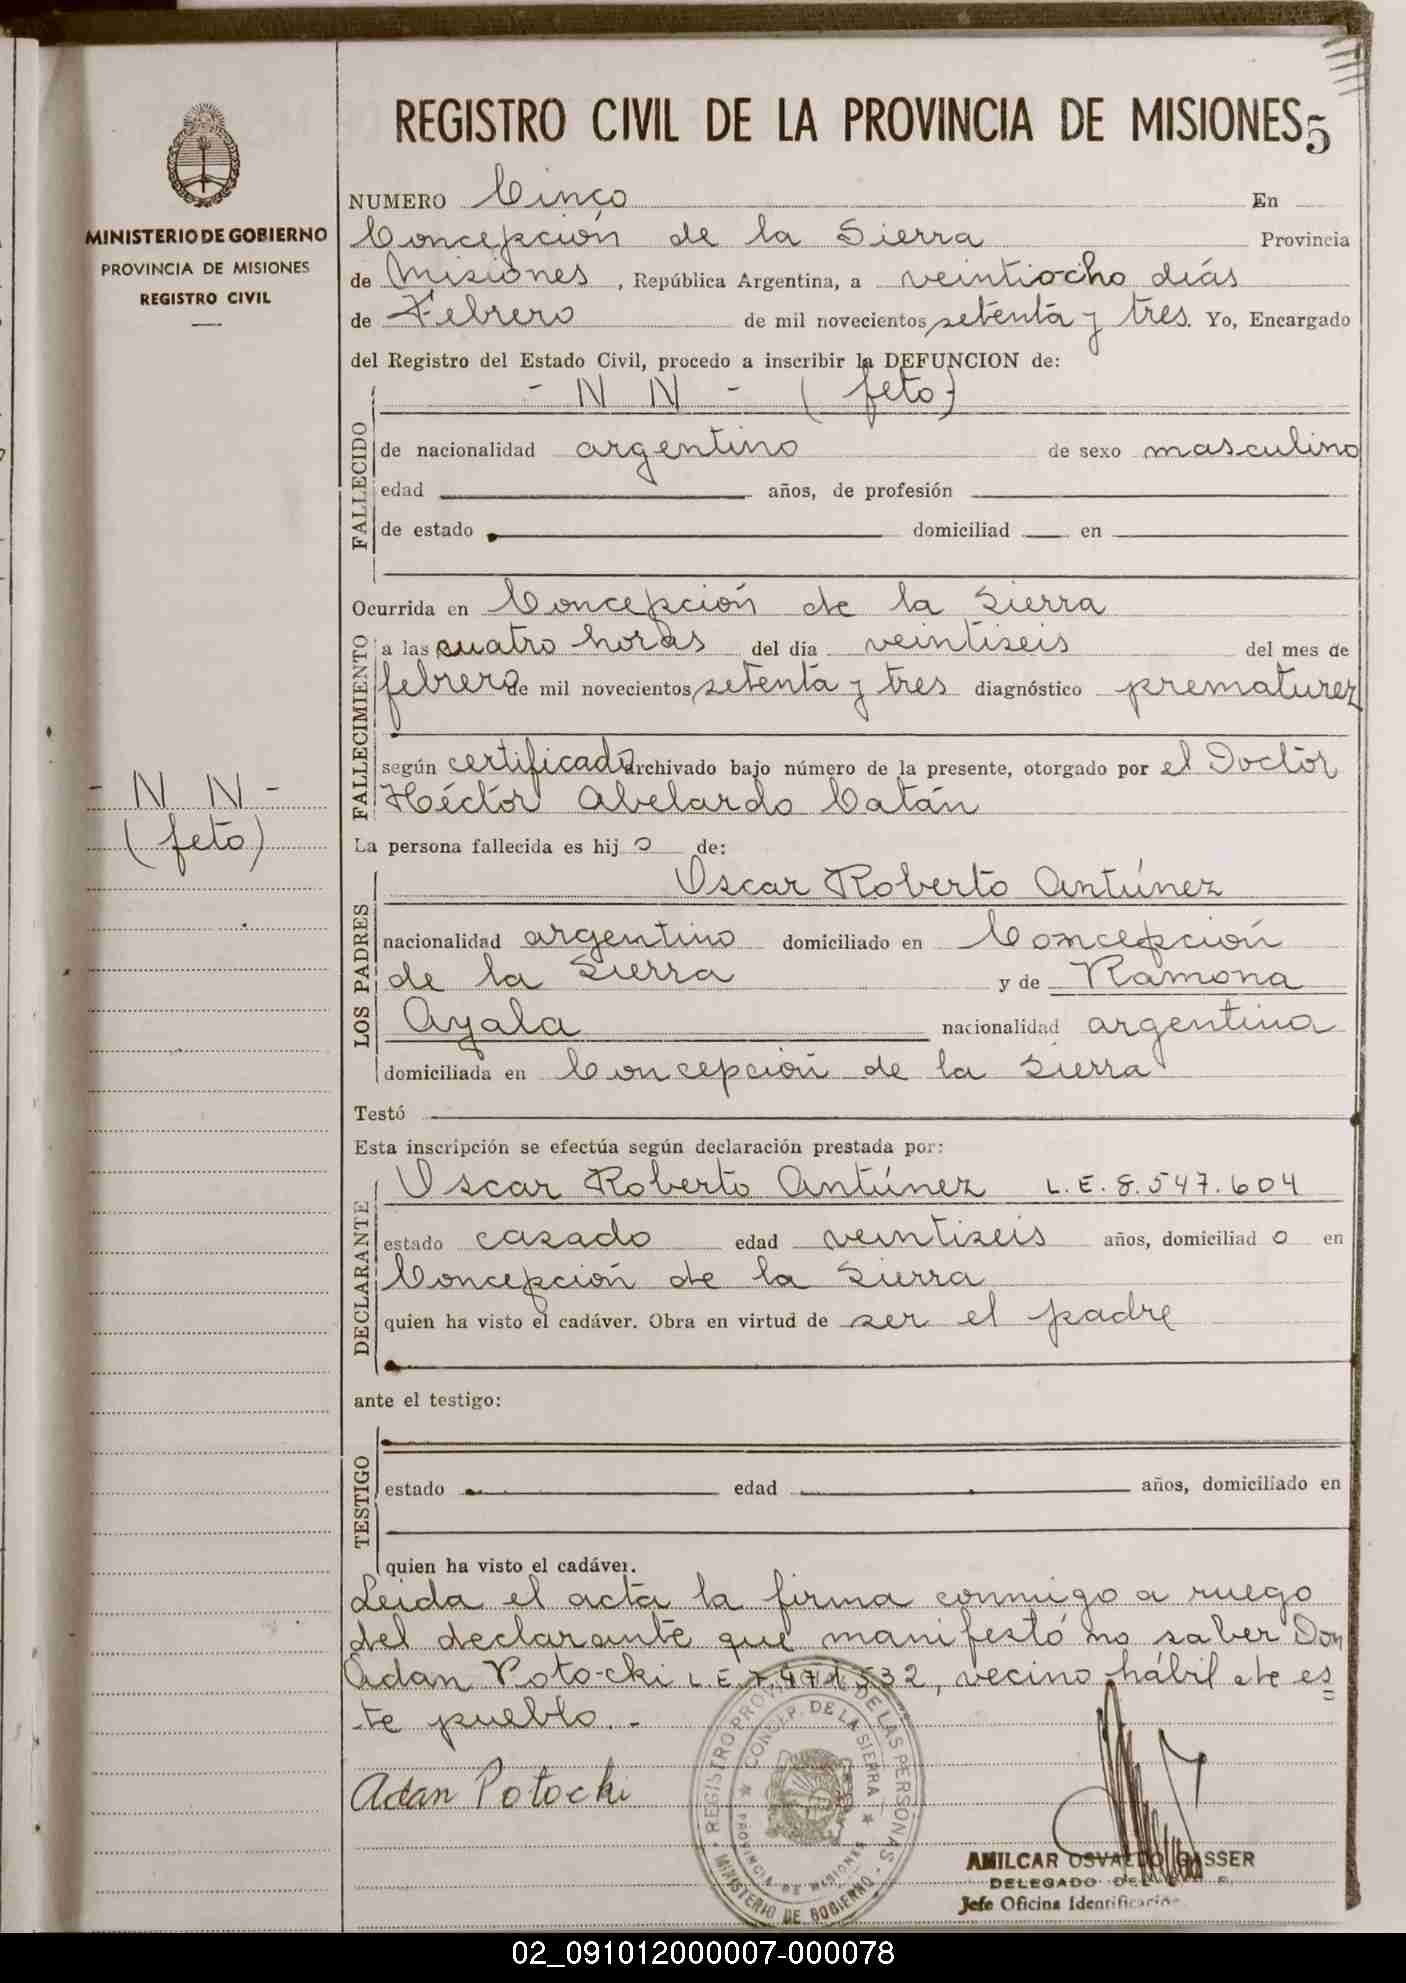 REGISTRO CIVIL DE LA PROVINCIA DE MISIONES 5
MINISTERIO DE GOBIERNO
PROVINCIA DE MISIONES
REGISTRO CIVIL
NUMERO Cinco En
Concepción de la Sierra Provincia
de Misiones, República Argentina, a veintiocho días
de Febrero de mil novecientos setenta y tres. Yo, Encargado
del Registro del Estado Civil, procedo a inscribir la DEFUNCION de:
- N N - (feto)
FALLECIDO
de nacionalidad argentino de sexo masculino
edad años, de profesión
de estado domiciliad en
Ocurrida en Concepción de la Sierra
FALLECIMIENTO
a las cuatro horas del día veintiseis del mes de
febrero de mil novecientos setenta y tres diagnóstico prematurez
según certificado archivado bajo número de la presente, otorgado por el Doctor
Héctor Abelardo Catán
- N N -
(feto)
La persona fallecida es hijo de:
LOS PADRES
Oscar Roberto Antúnez
nacionalidad argentino domiciliado en Concepción
de la Sierra y de Ramona
Ayala nacionalidad argentina
domiciliada en Concepción de la Sierra
Testó
Esta inscripción se efectúa según declaración prestada por:
DECLARANTE
Oscar Roberto Antúnez L.E. 8.547.604
estado casado edad veintiseis años, domiciliado en
Concepción de la Sierra
quien ha visto el cadáver. Obra en virtud de ser el padre
ante el testigo:
TESTIGO
estado edad años, domiciliado en
quien ha visto el cadáver.
Leida el acta la firma conmigo a ruego
del declarante que manifestó no saber Don
Adan Potocki L.E. 532, vecino hábil de es
te pueblo.-
Adan Potocki
REGISTRO PROV. DE LAS PERSONAS
MINISTERIO DE GOBIERNO
CONCEP. DE LA SIERRA
PROVINCIA DE MISIONES
AMILCAR OSVALDO GASSER
DELEGADO
Jefe Oficina Identificación
02_091012000007-000078